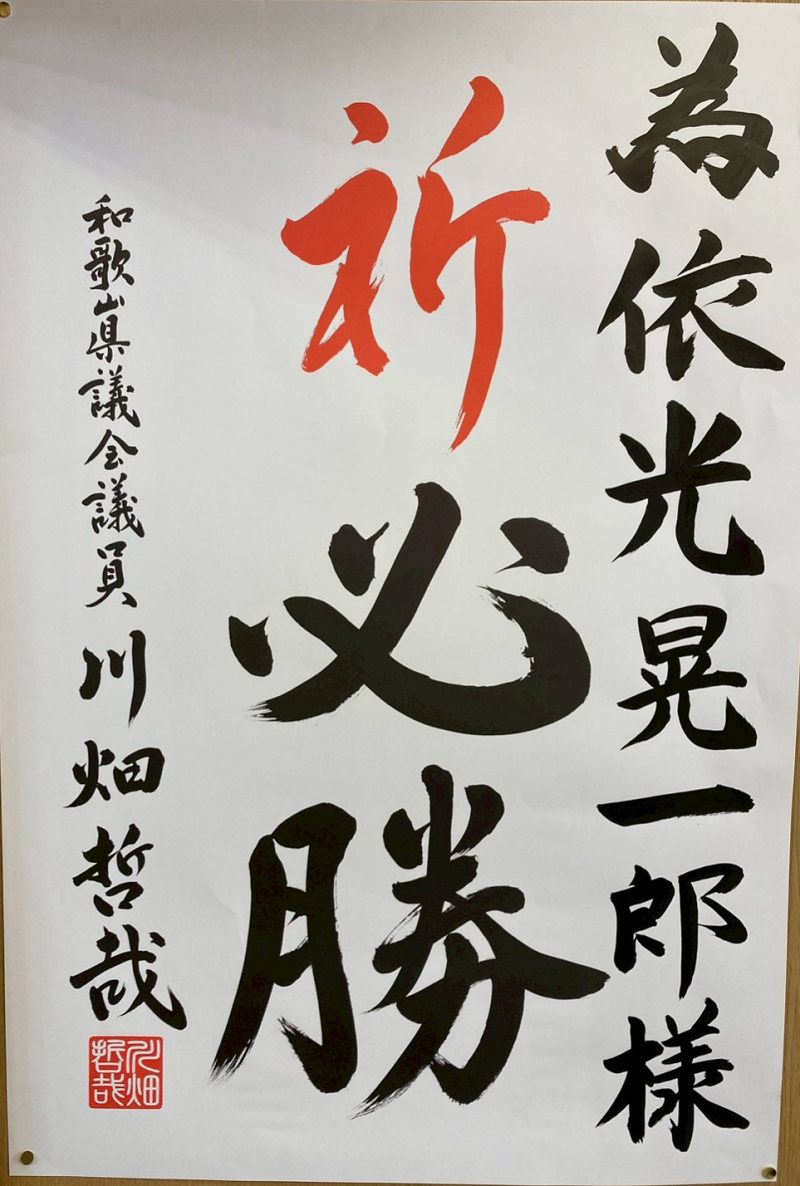 為依光晃一郎様
祈必勝
和歌山県議会議員 川畑哲哉
川畑哲哉